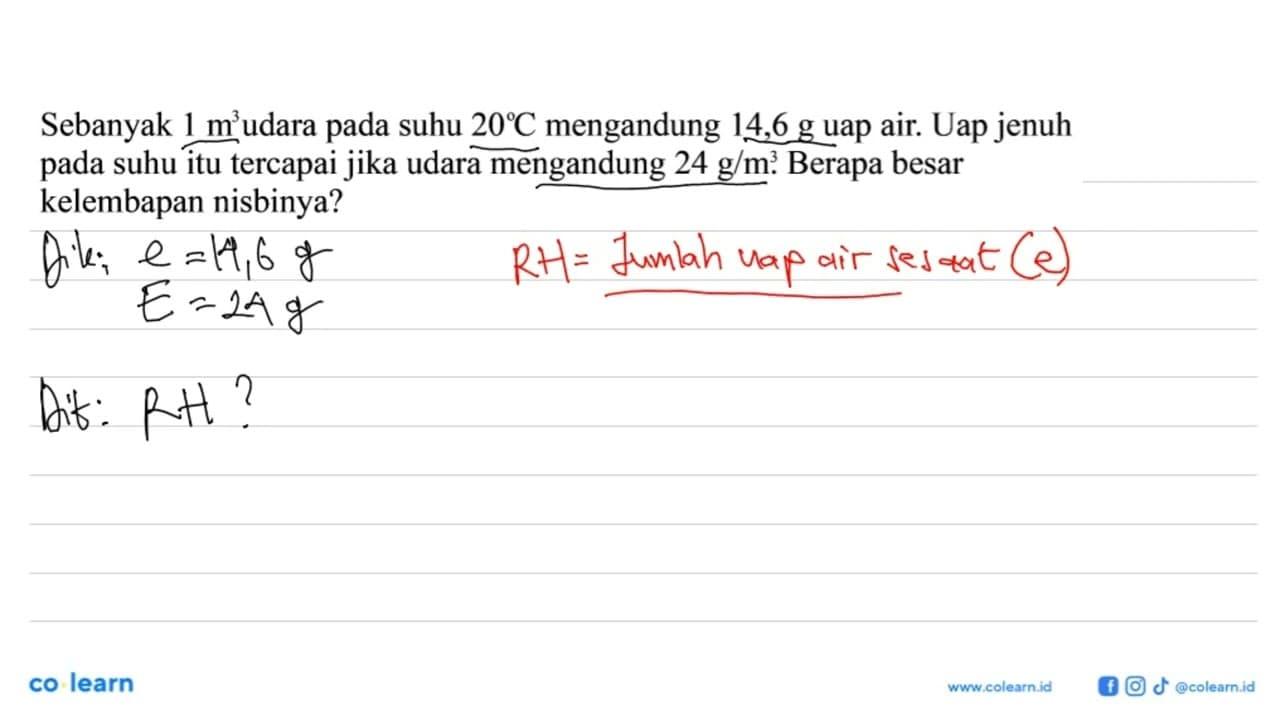 Sebanyak 1 m³ udara pada suhu 20°C mengandung 14,6 g uap air. Uap jenuh
pada suhu itu tercapai jika udara mengandung 24 g/m³. Berapa besar
kelembapan nisbinya?
Dik: e = 14,6 g
RH = Jumlah uap air sesaat (e)
E = 24 g
Dit: RH ?
co learn
www.colearn.id
@colearn.id